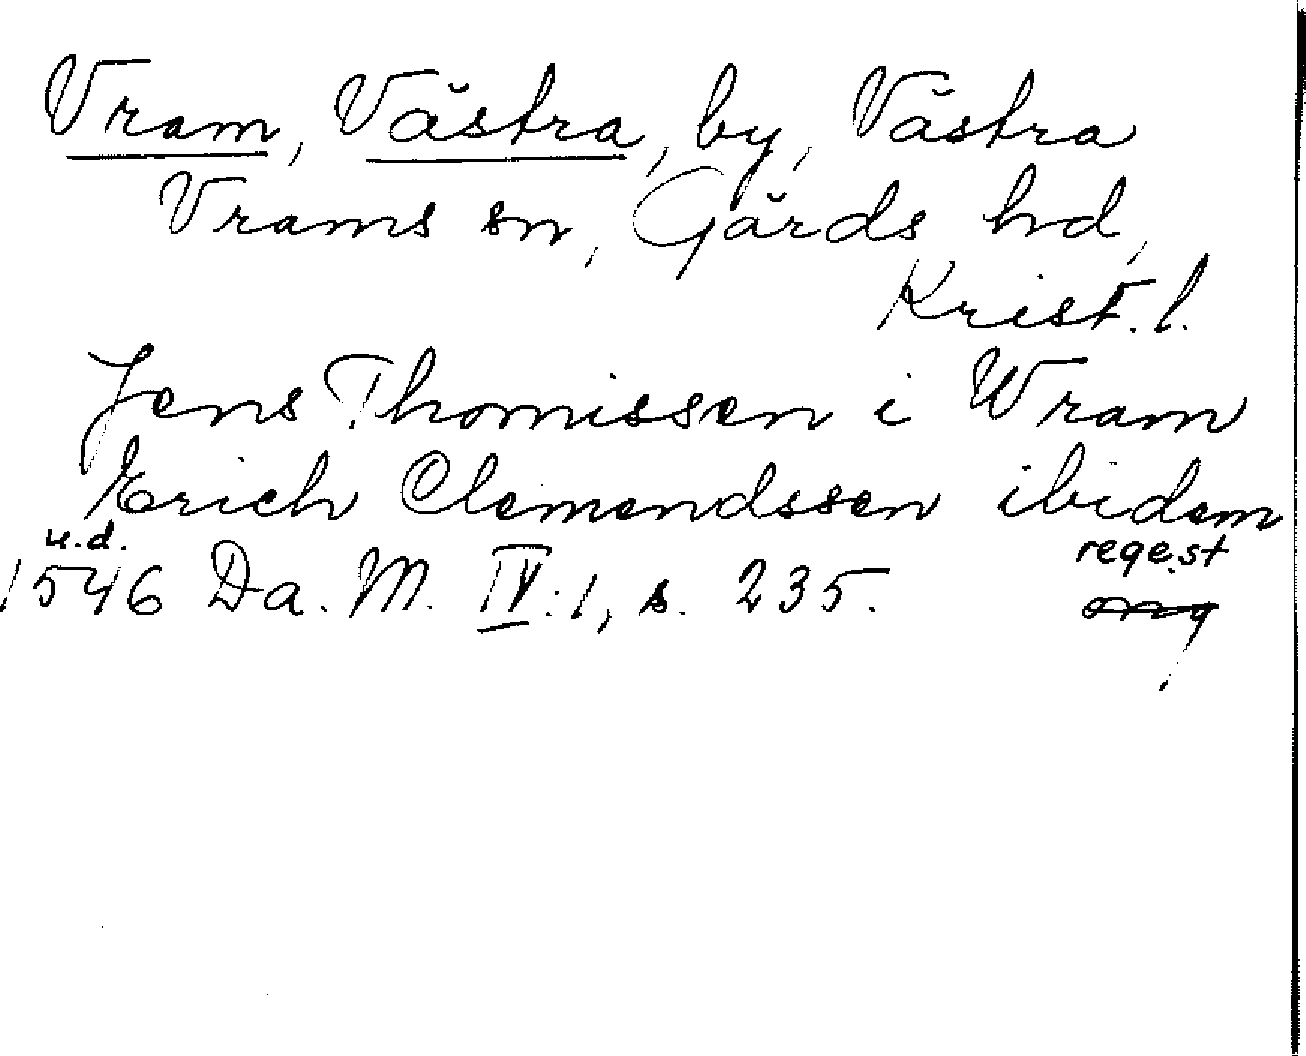 Vram, Västra, by, Västra
Vrams sn, Gärds hd,
Krist. l.
Jens Thomissen i Wram
Erich Clemendssen ibidem
u.d. regest
1546 Da. M. IV:1, s. 235.